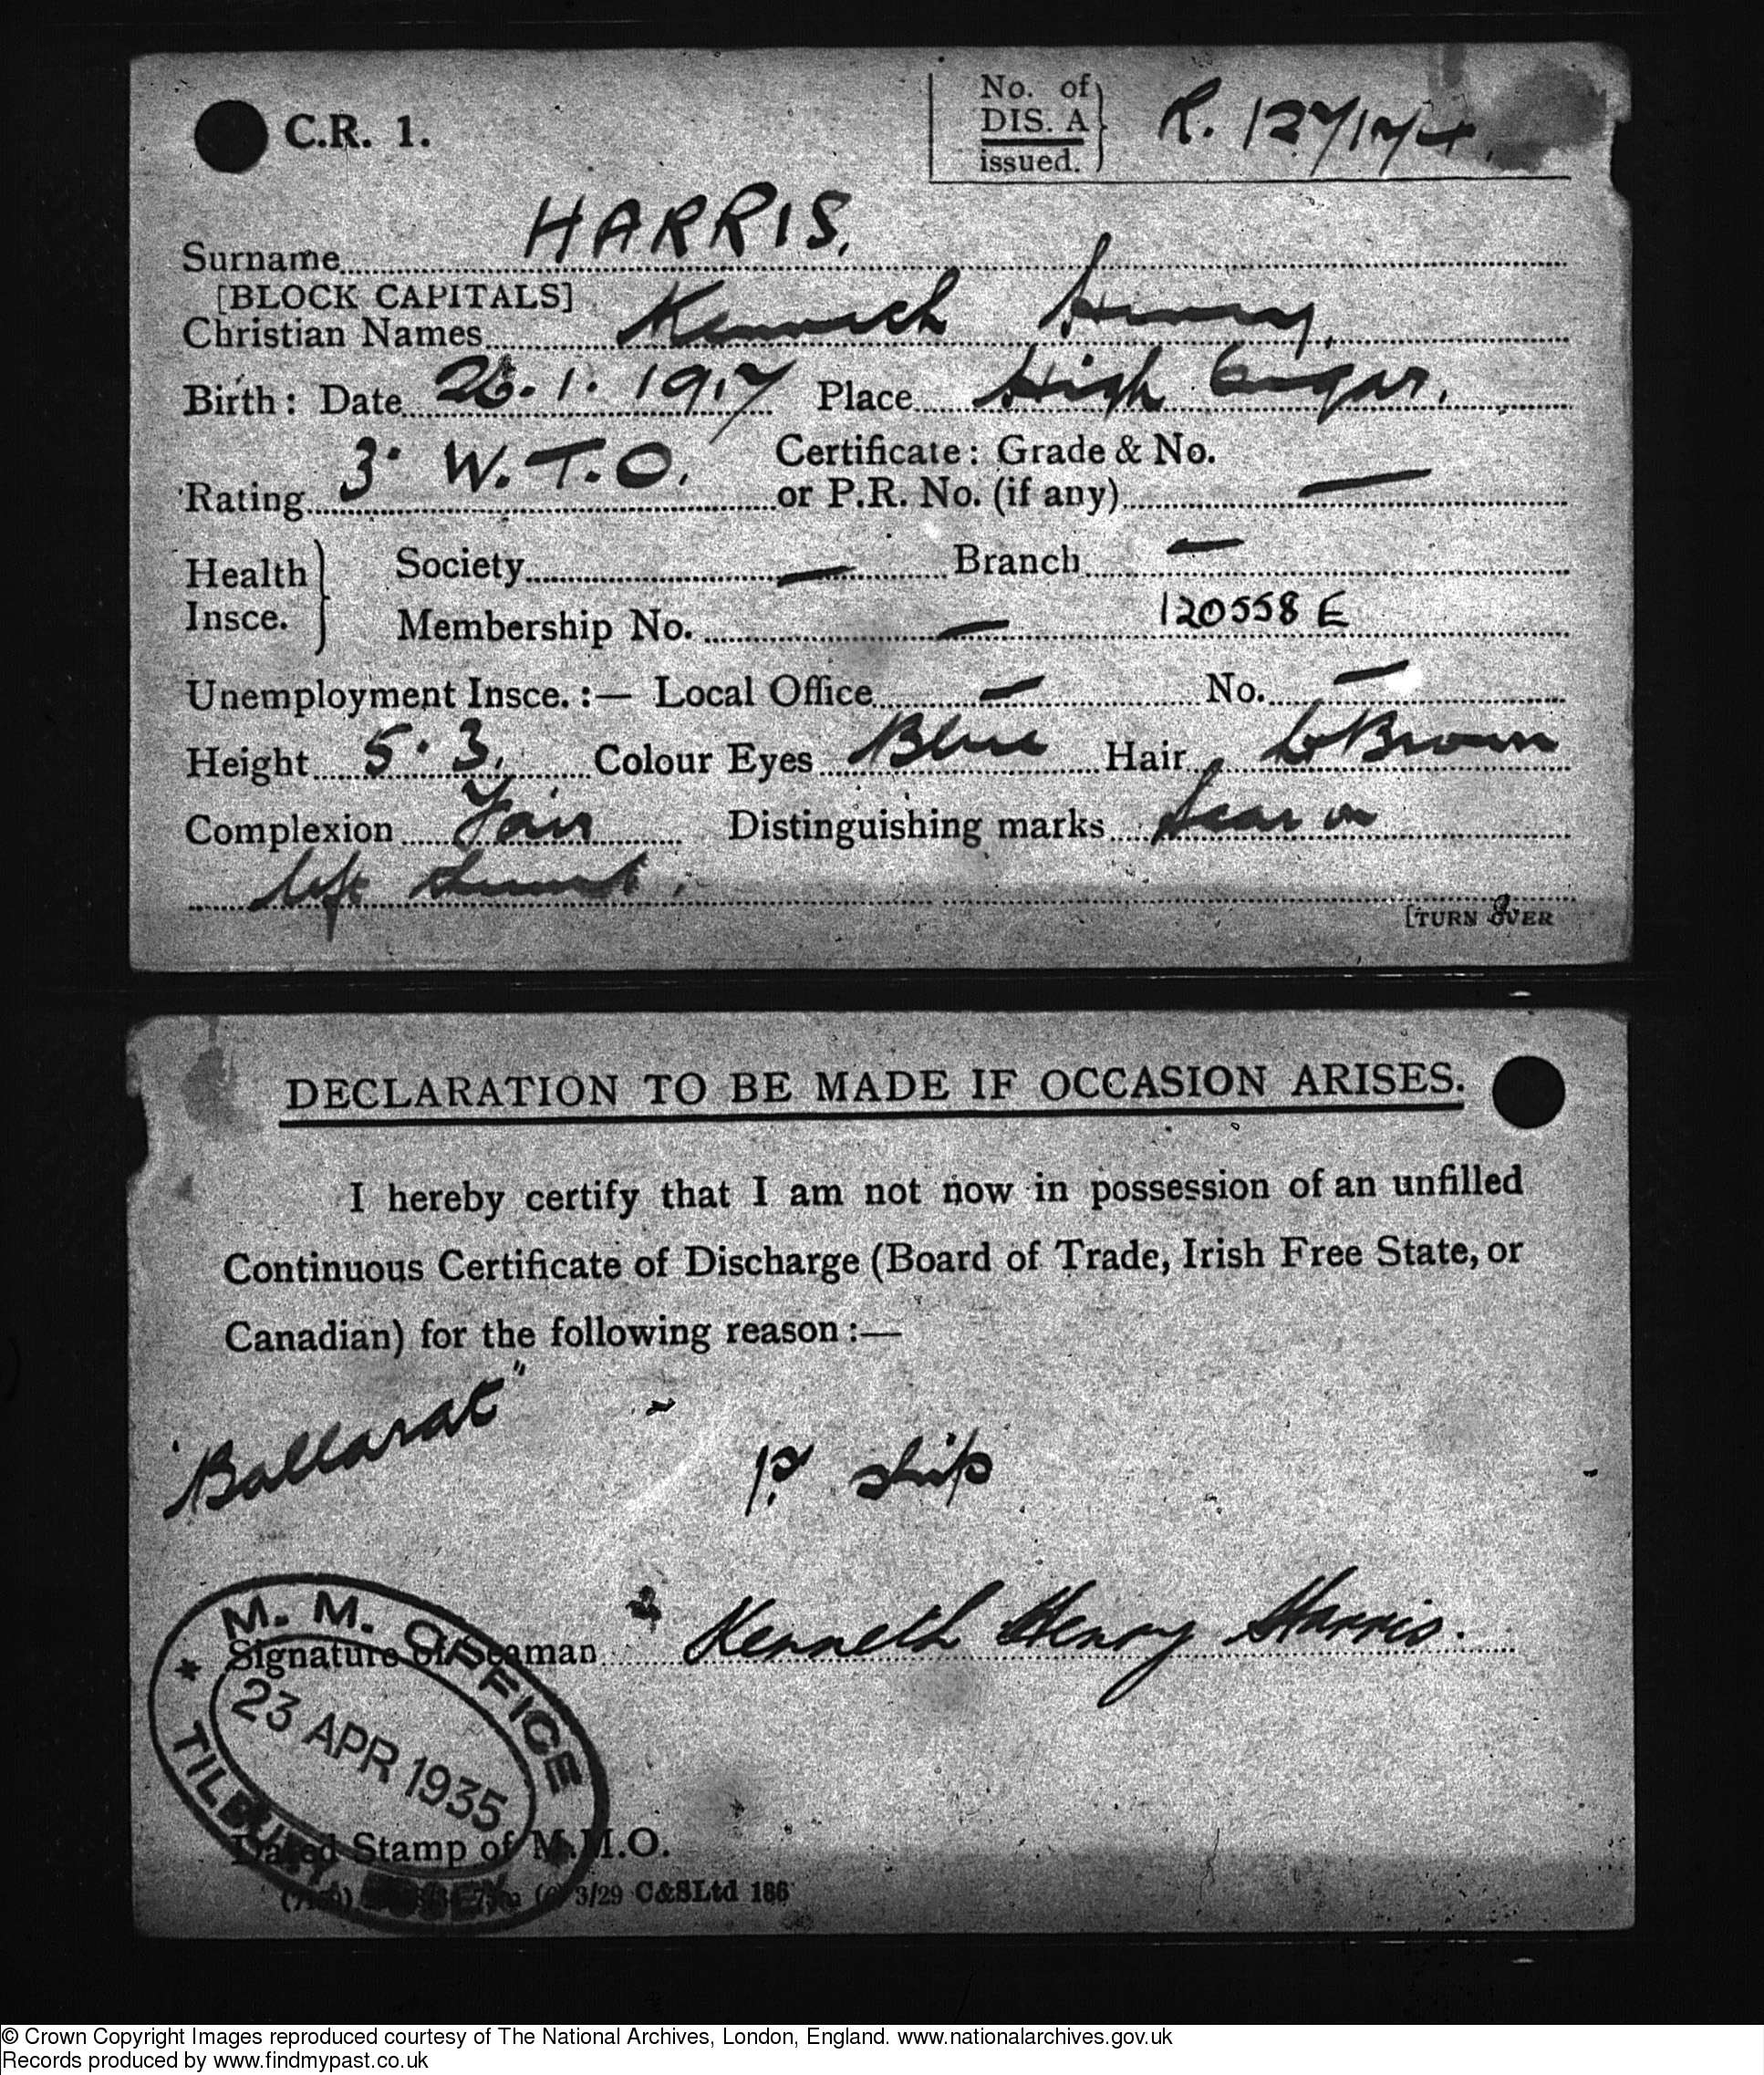 C.R. 1.
No. of
DIS. A
issued.
R. 127174.
Surname HARRIS.
[BLOCK CAPITALS]
Christian Names Kenneth Henry.
Birth: Date 26.1.1917 Place High Ongar.
Rating 3. W.T.O. Certificate: Grade & No.
or P.R. No. (if any) —
Health Insce. Society — Branch —
Membership No. — 120558 E
Unemployment Insce. :— Local Office — No. —
Height 5.3. Colour Eyes Blue Hair Lt Brown
Complexion Fair Distinguishing marks Scar on
left thumb.
[TURN OVER
DECLARATION TO BE MADE IF OCCASION ARISES.
I hereby certify that I am not now in possession of an unfilled
Continuous Certificate of Discharge (Board of Trade, Irish Free State, or
Canadian) for the following reason :—
"Ballarat" - 1st ship
M. M. OFFICE
Signature of Seaman Kenneth Henry Harris.
23 APR 1935
TILBURY
Dated Stamp of M.M.O.
3/29 C&SLtd 186
© Crown Copyright Images reproduced courtesy of The National Archives, London, England. www.nationalarchives.gov.uk
Records produced by www.findmypast.co.uk